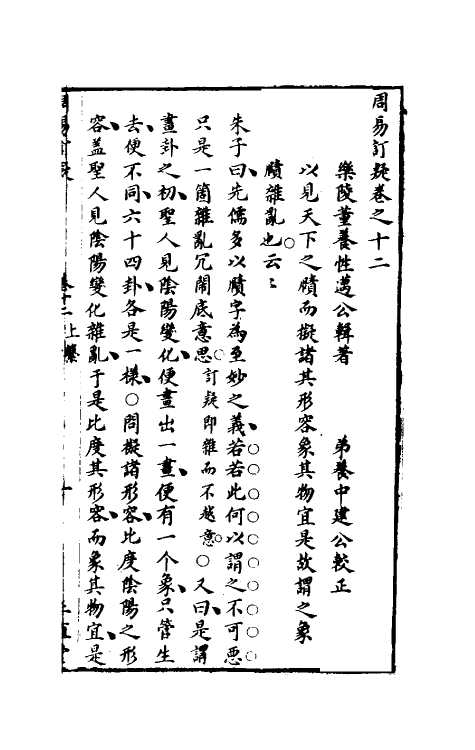 周易訂疑卷之十二
樂陵董養性邁公輯著　弟養中建公較正
以見天下之賾而擬諸其形容象其物宜是故謂之象
賾雜亂也云〻
朱子曰先儒多以賾字為至妙之義若若此何以謂之不可惡
只是一箇雜亂冗鬧底意思訂疑即雜而不越意○又曰是謂
畫卦之初聖人見陰陽變化便畫出一畫便有一个象只管生
去便不同六十四卦各是一樣○問擬諸形容比度陰陽之形
容盖聖人見陰陽變化雜亂于是比度其形容而象其物宜是
周易訂疑　卷十二上繫